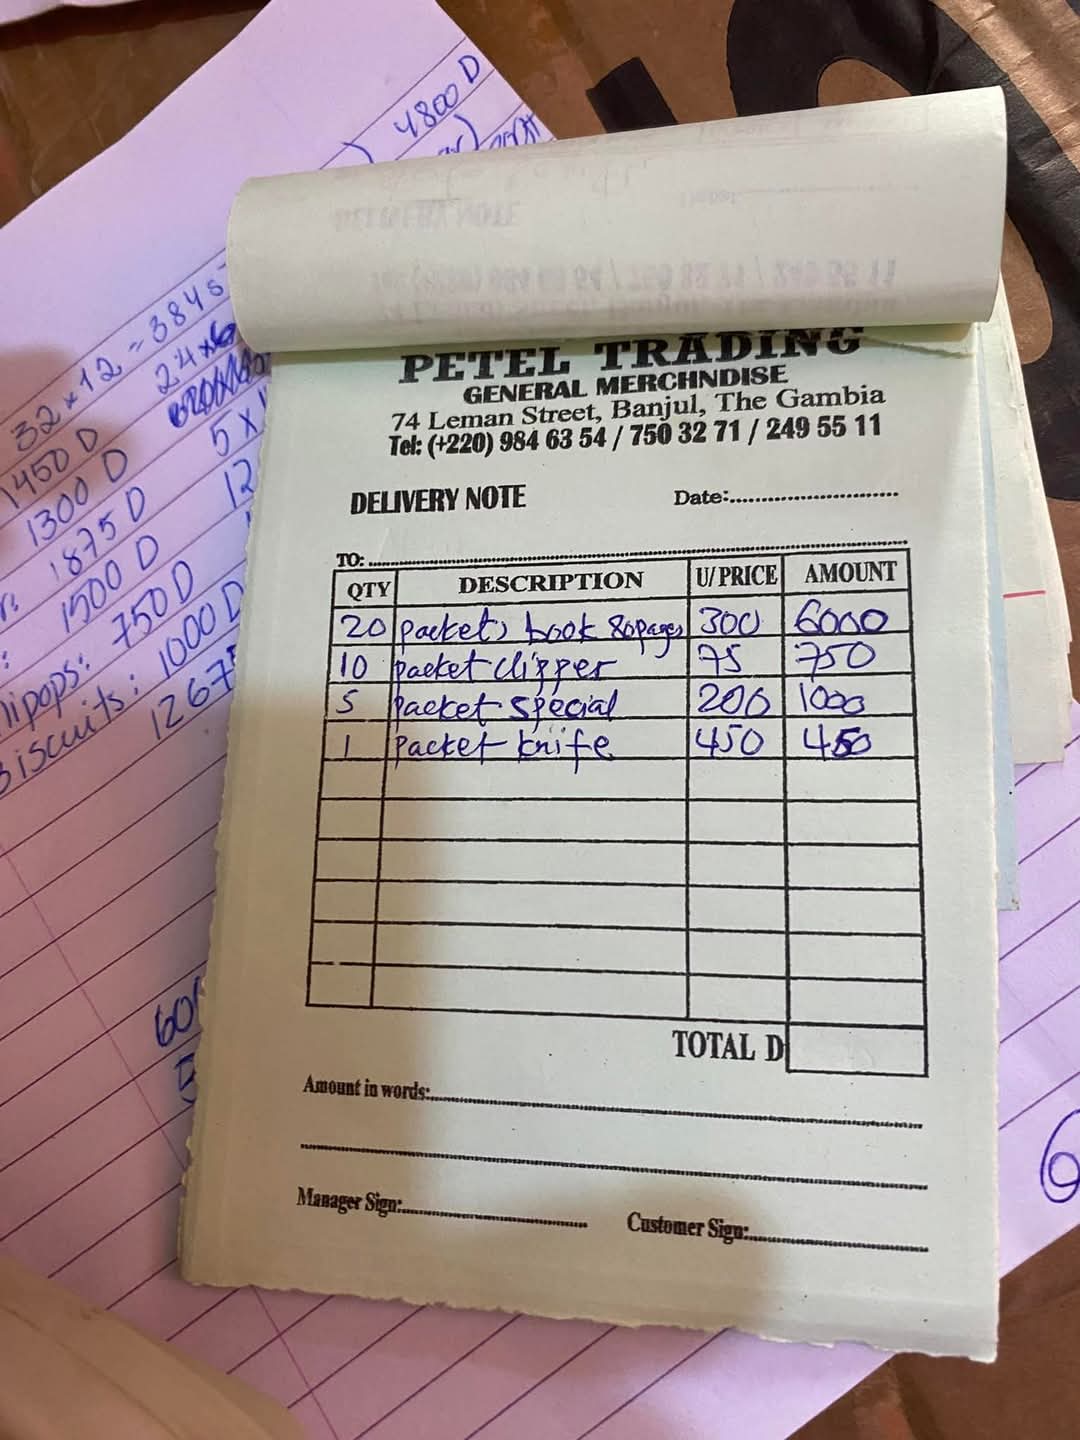 4800 D
32 x 12 = 384
1450 D
24 x 6
1300 D
5 x
1875 D
12
1500 D
750 D
lipops: 1000 D
Biscuits: 1267
PETEL TRADING
GENERAL MERCHNDISE
74 Leman Street, Banjul, The Gambia
Tel: (+220) 984 63 54 / 750 32 71 / 249 55 11
DELIVERY NOTE Date:
TO:
QTY DESCRIPTION U/PRICE AMOUNT
20 packets book 80pages 300 6000
10 packet clipper 75 750
5 packet special 200 1000
1 packet knife 450 450
TOTAL D
Amount in words:
Manager Sign: Customer Sign:
60
6